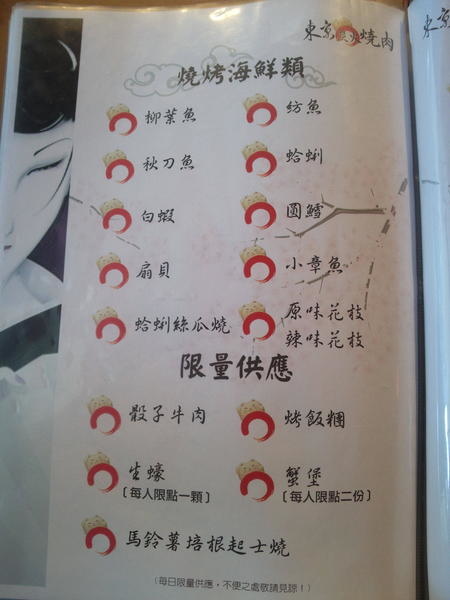 東京 燒肉
燒烤海鮮類
柳葉魚
魴魚
秋刀魚
蛤蜊
白蝦
圓鱈
扇貝
小章魚
蛤蜊絲瓜燒
原味花枝
辣味花枝
限量供應
骰子牛肉
烤飯糰
生蠔
〔每人限點一顆〕
蟹堡
〔每人限點二份〕
馬鈴薯培根起士燒
(每日限量供應，不便之處敬請見諒！)